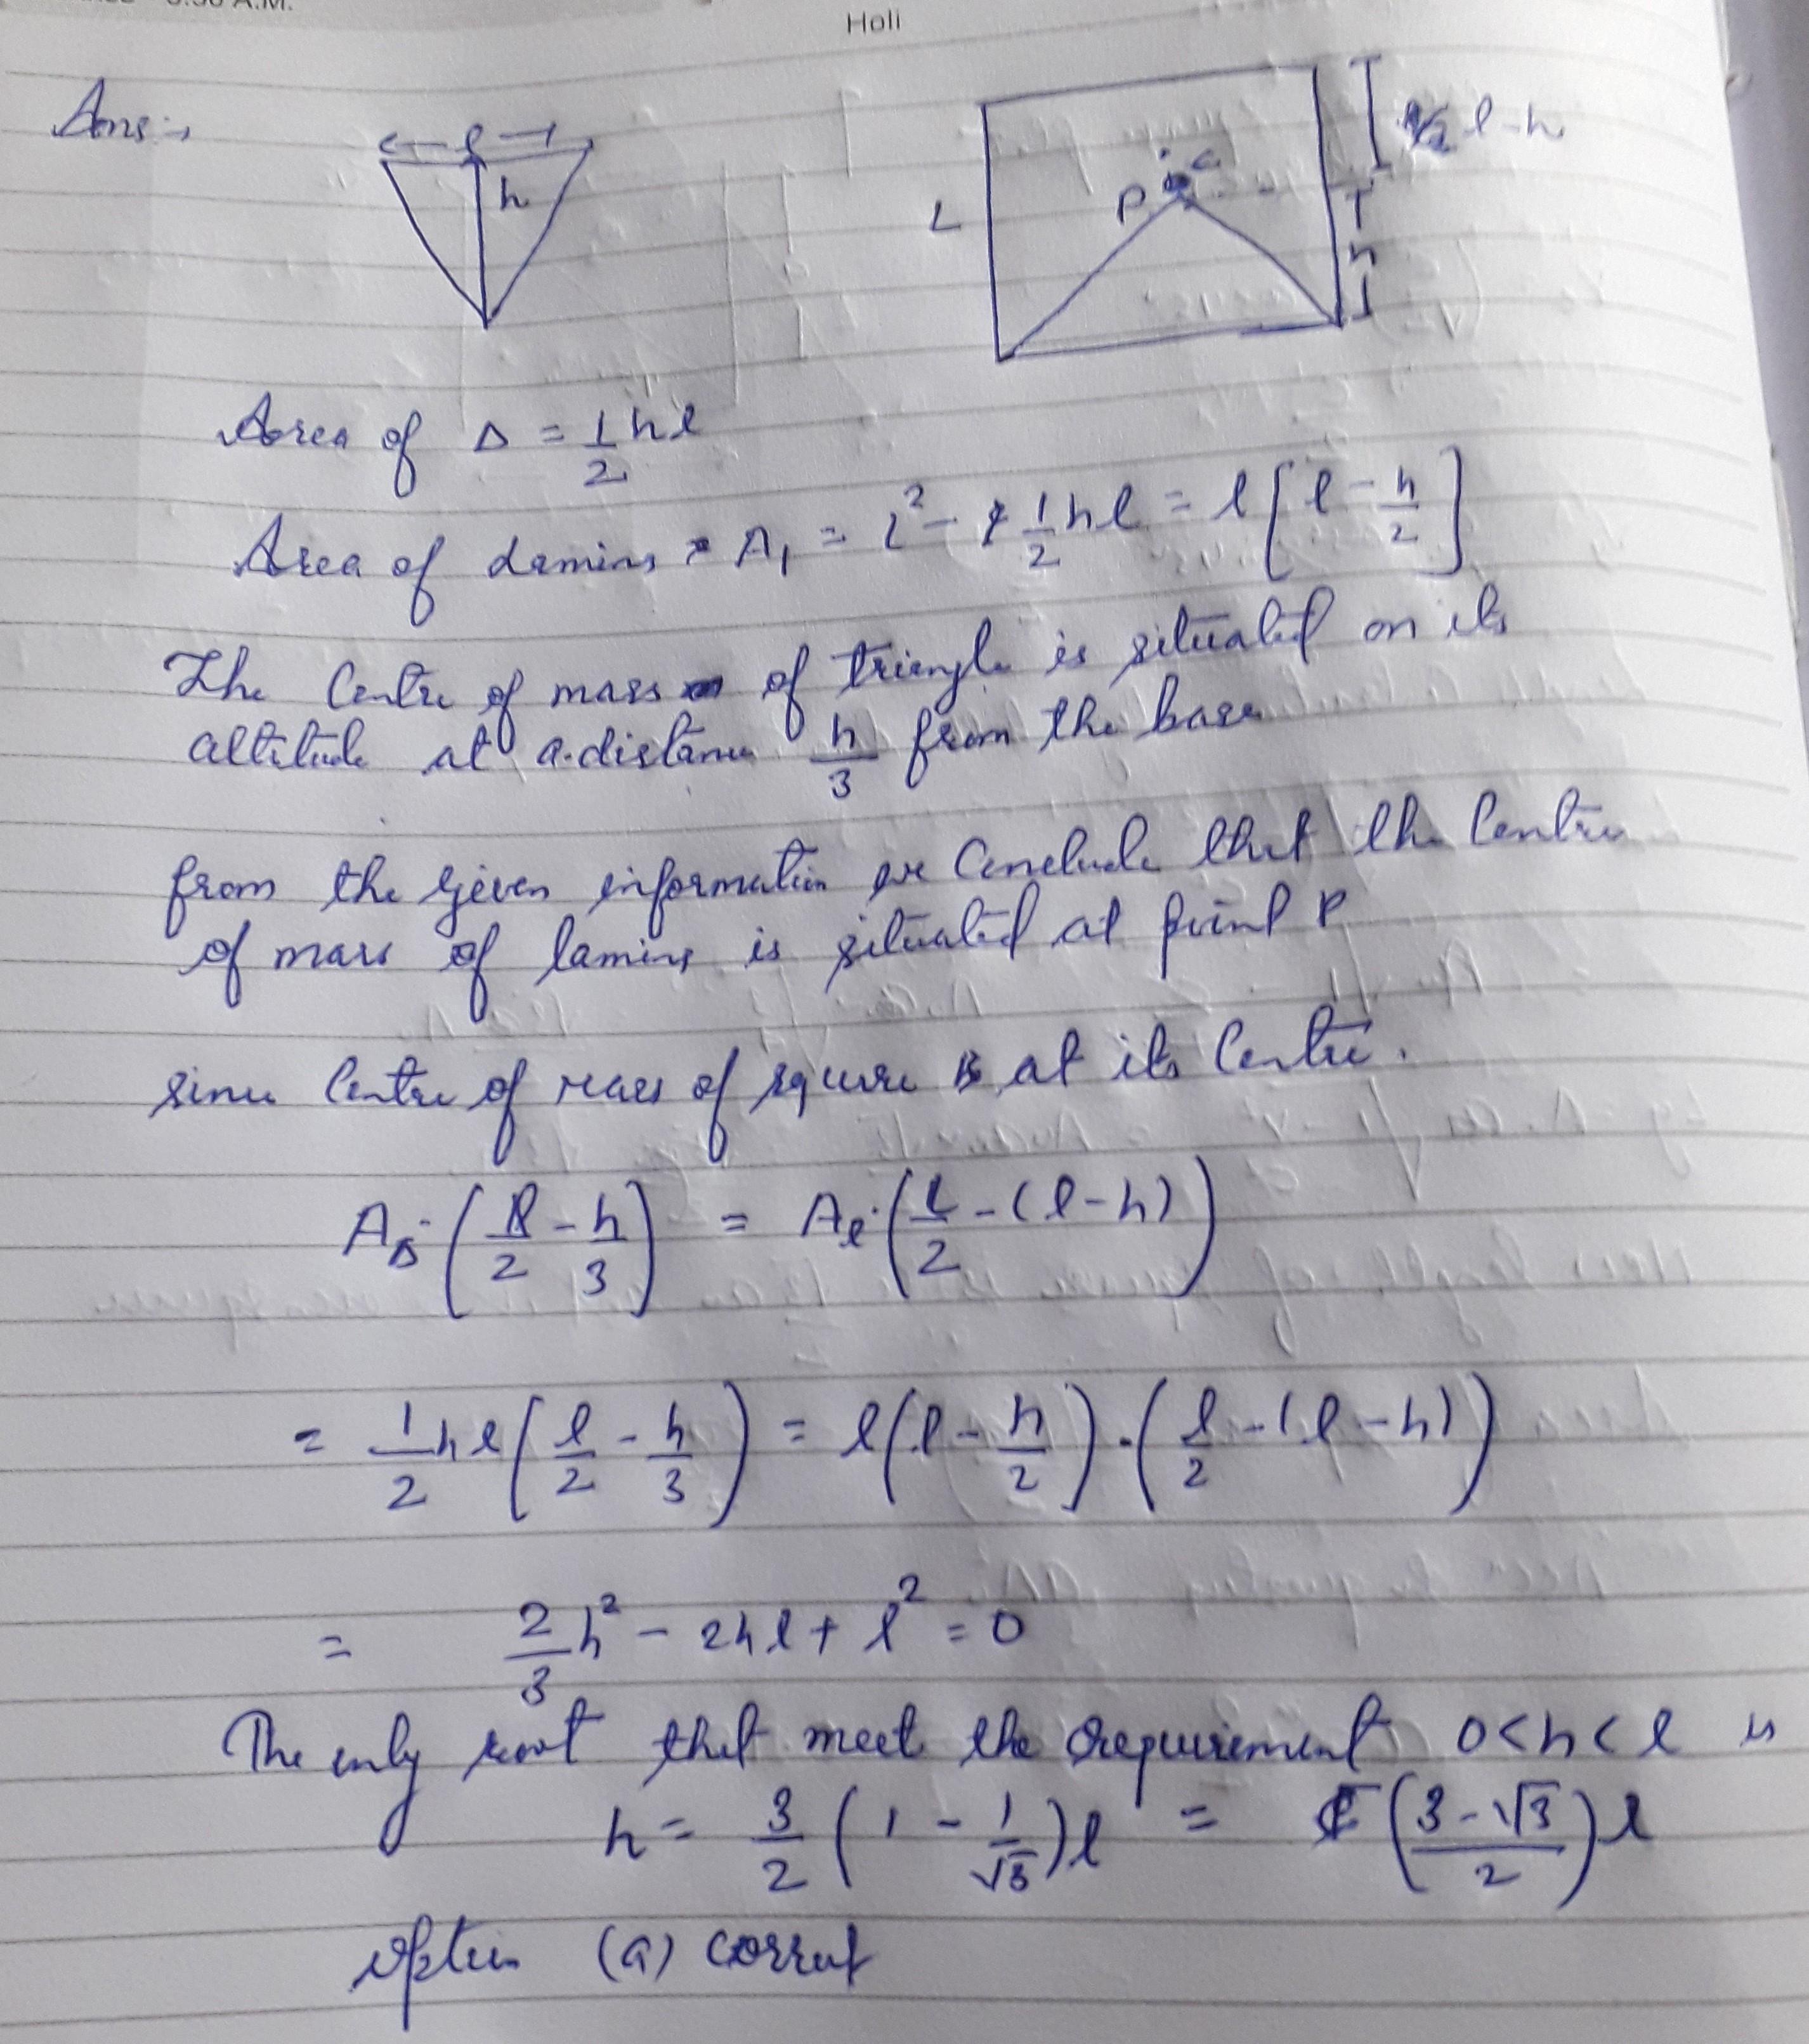 Holi
Ans :→
l
h
L
P
c
l-h
h
Area of Δ = 1/2 hl
Area of Lamina = A₁ = l² - 1/2 hl = l[l - h/2]
The Centre of mass of triangle is situated on its
altitude at a distance h/3 from the base
from the given information we Conclude that the Centre
of mass of lamina is situated at point P
since Centre of mass of square is at its Centre.
A_Δ·(l/2 - h/3) = A_l·(L/2 - (l-h))
= 1/2 hl (l/2 - h/3) = l(l - h/2)·(l/2 - (l-h))
= 2/3 h² - 2hl + l² = 0
The only root that meet the requirement 0<h<l is
h = 3/2 (1 - 1/√3)l = (3-√3/2)l
option (a) correct